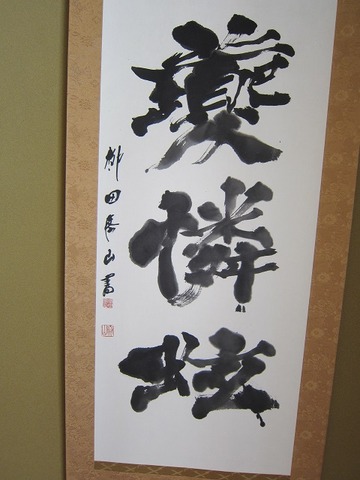 夔憐蚿
柳田泰山書